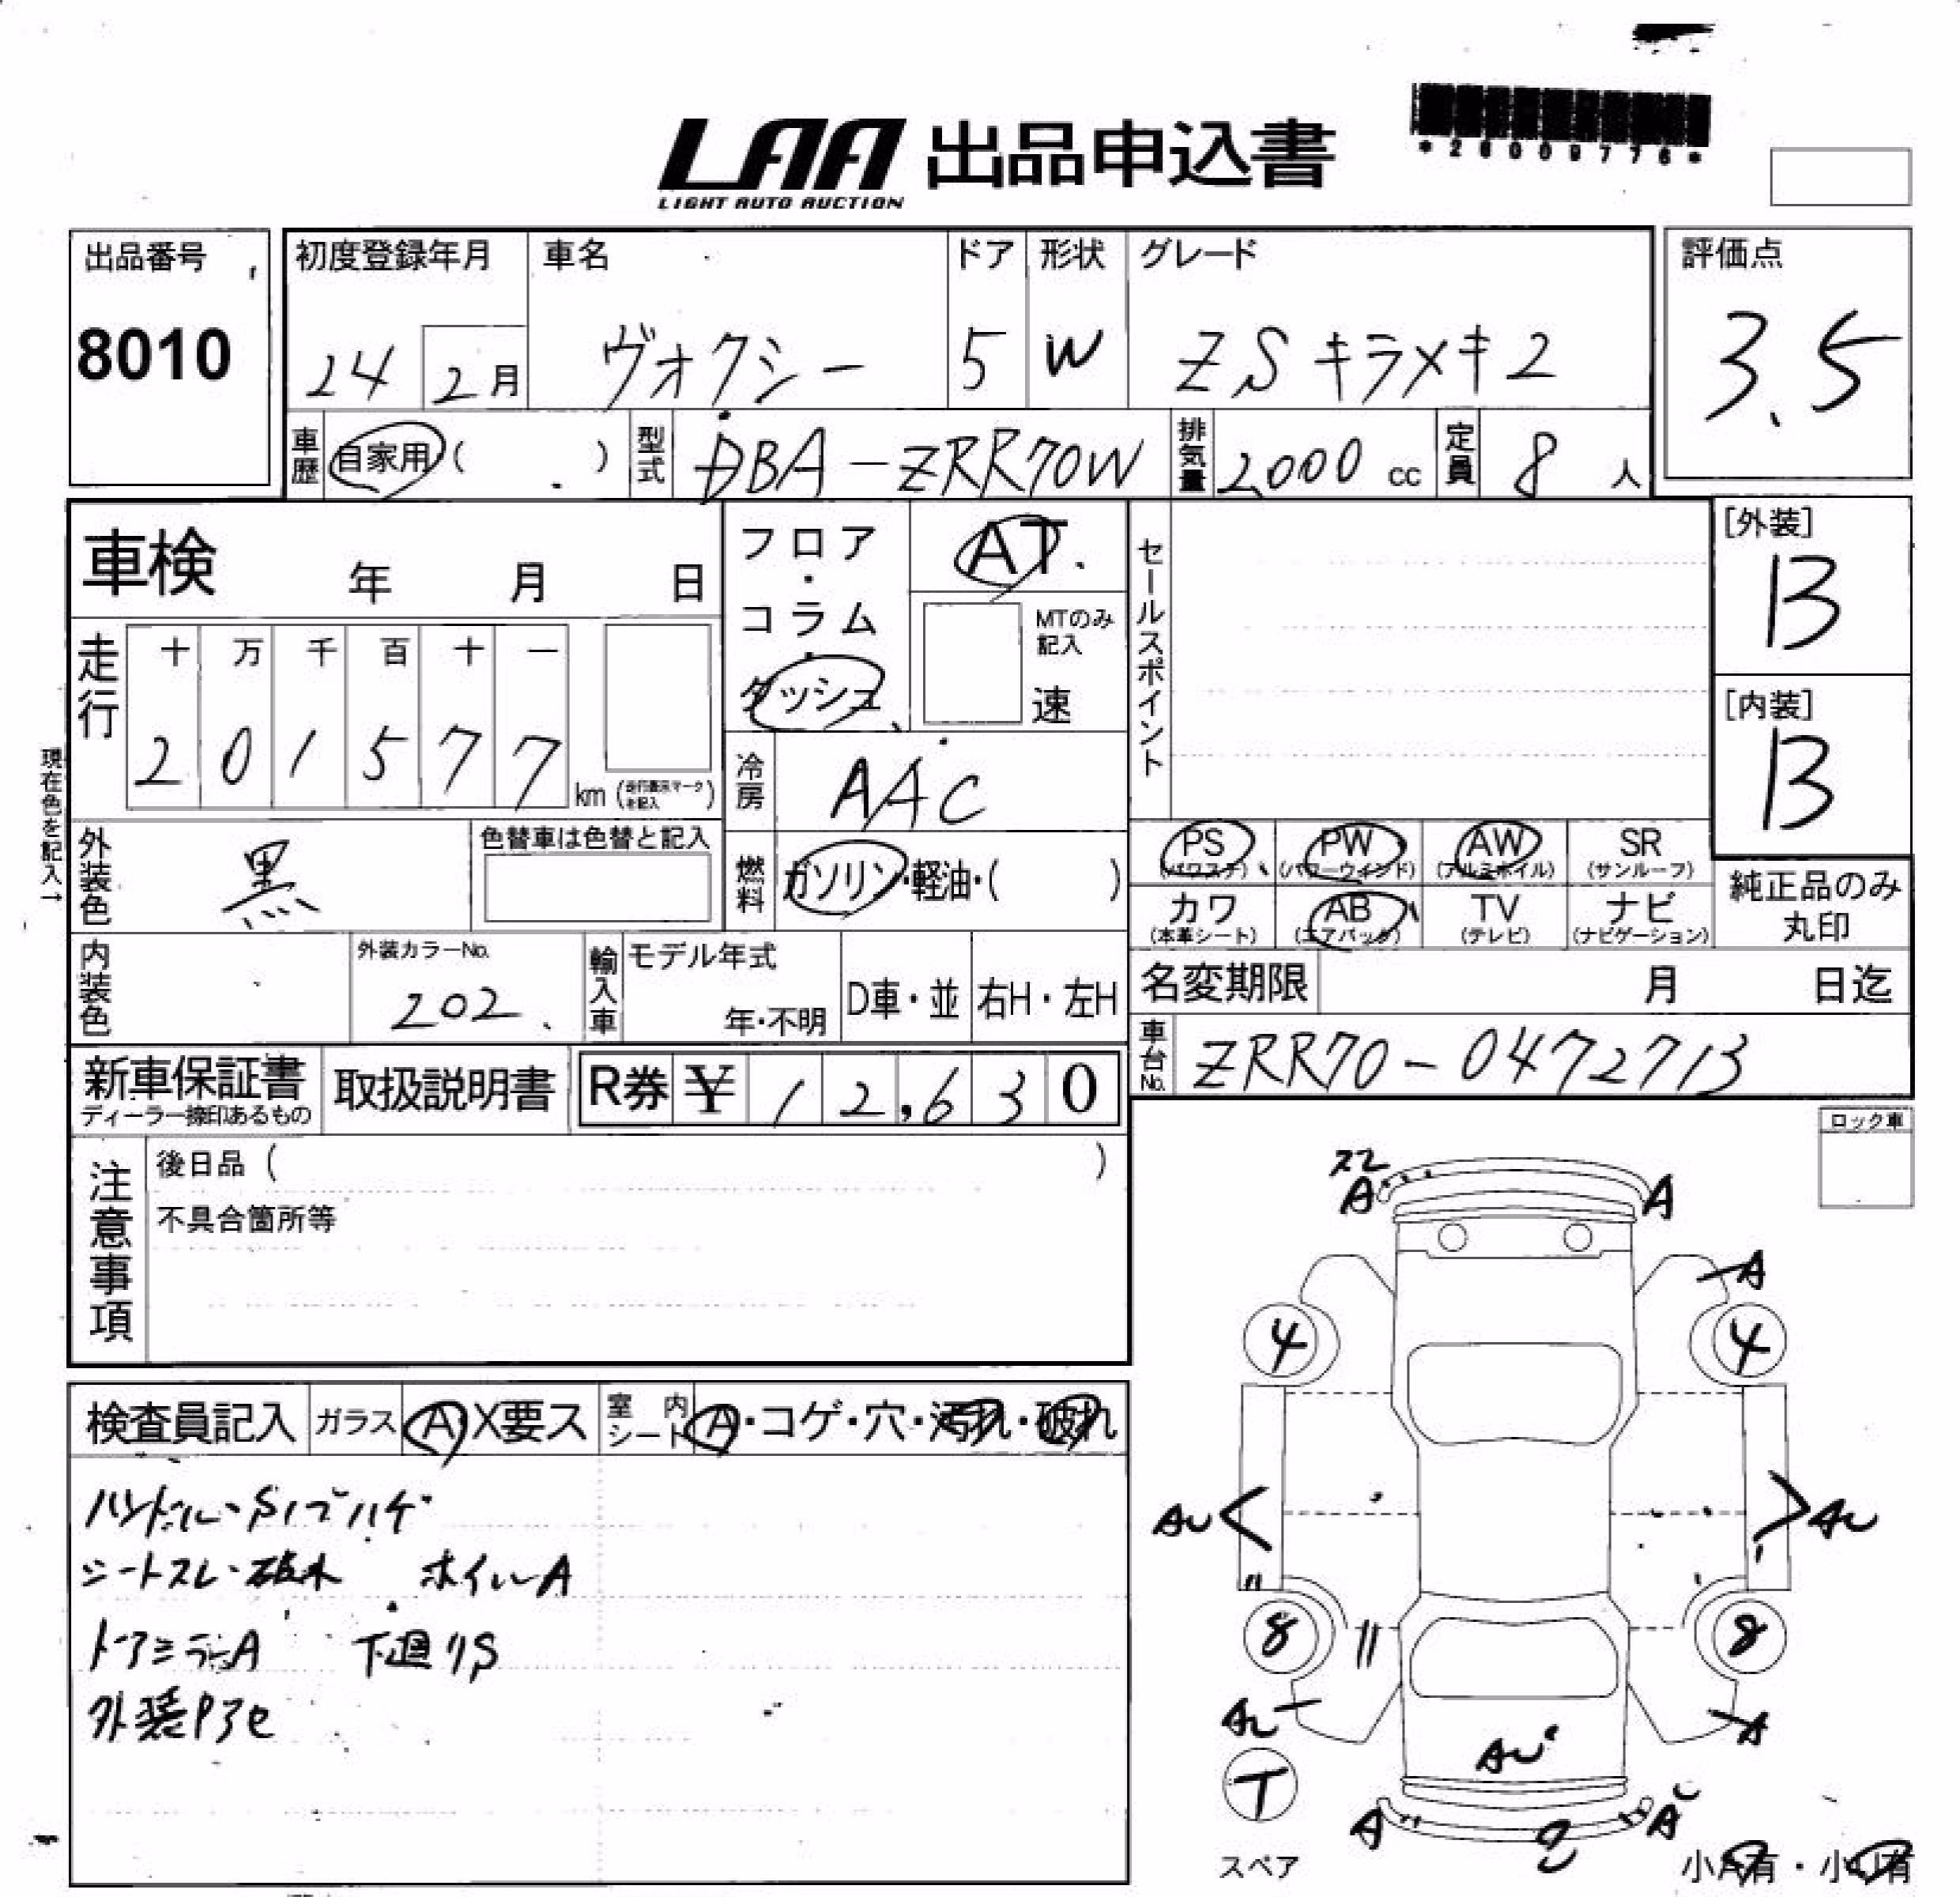 LAA 出品申込書
LIGHT AUTO AUCTION
*26009776*
出品番号
8010
初度登録年月
24 2月
車名
ヴォクシー
ドア
5
形状
W
グレード
ZSキラメキ2
評価点
3.5
車歴 自家用( )
型式 DBA-ZRR70W
排気量 2000 cc
定員 8 人
車検 年 月 日
フロア・コラム・ダッシュ
AT
MTのみ記入
速
セールスポイント
[外装]
B
[内装]
B
走行
十 万 千 百 十 一
2 0 1 5 7 7 km (走行表示マークを記入)
現在色を記入→
冷房 AAC
外装色 黒
色替車は色替と記入
燃料 ガソリン・軽油・( )
PS (パワステ)
PW (パワーウィンド)
AW (アルミホイル)
SR (サンルーフ)
カワ (本革シート)
AB (エアバック)
TV (テレビ)
ナビ (ナビゲーション)
純正品のみ丸印
内装色
外装カラーNo.
202
輸入車
モデル年式
年・不明
D車・並
右H・左H
名変期限 月 日迄
車台No. ZRR70-0472713
新車保証書
ディーラー捺印あるもの
取扱説明書
R券 ¥ 12,630
注意事項
後日品 ( )
不具合箇所等
ロック車
検査員記入
ガラス A X要ス
室内シート A・コゲ・穴・汚れ・破れ
ハンドル・Sノブハゲ
シートスレ・破れ ホイルA
ドアミラーA 下廻りS
外装
スス
A
A
A
4
4
AU
AU
8
8
A
T
AU
A
A
スペア
小A有・小U有